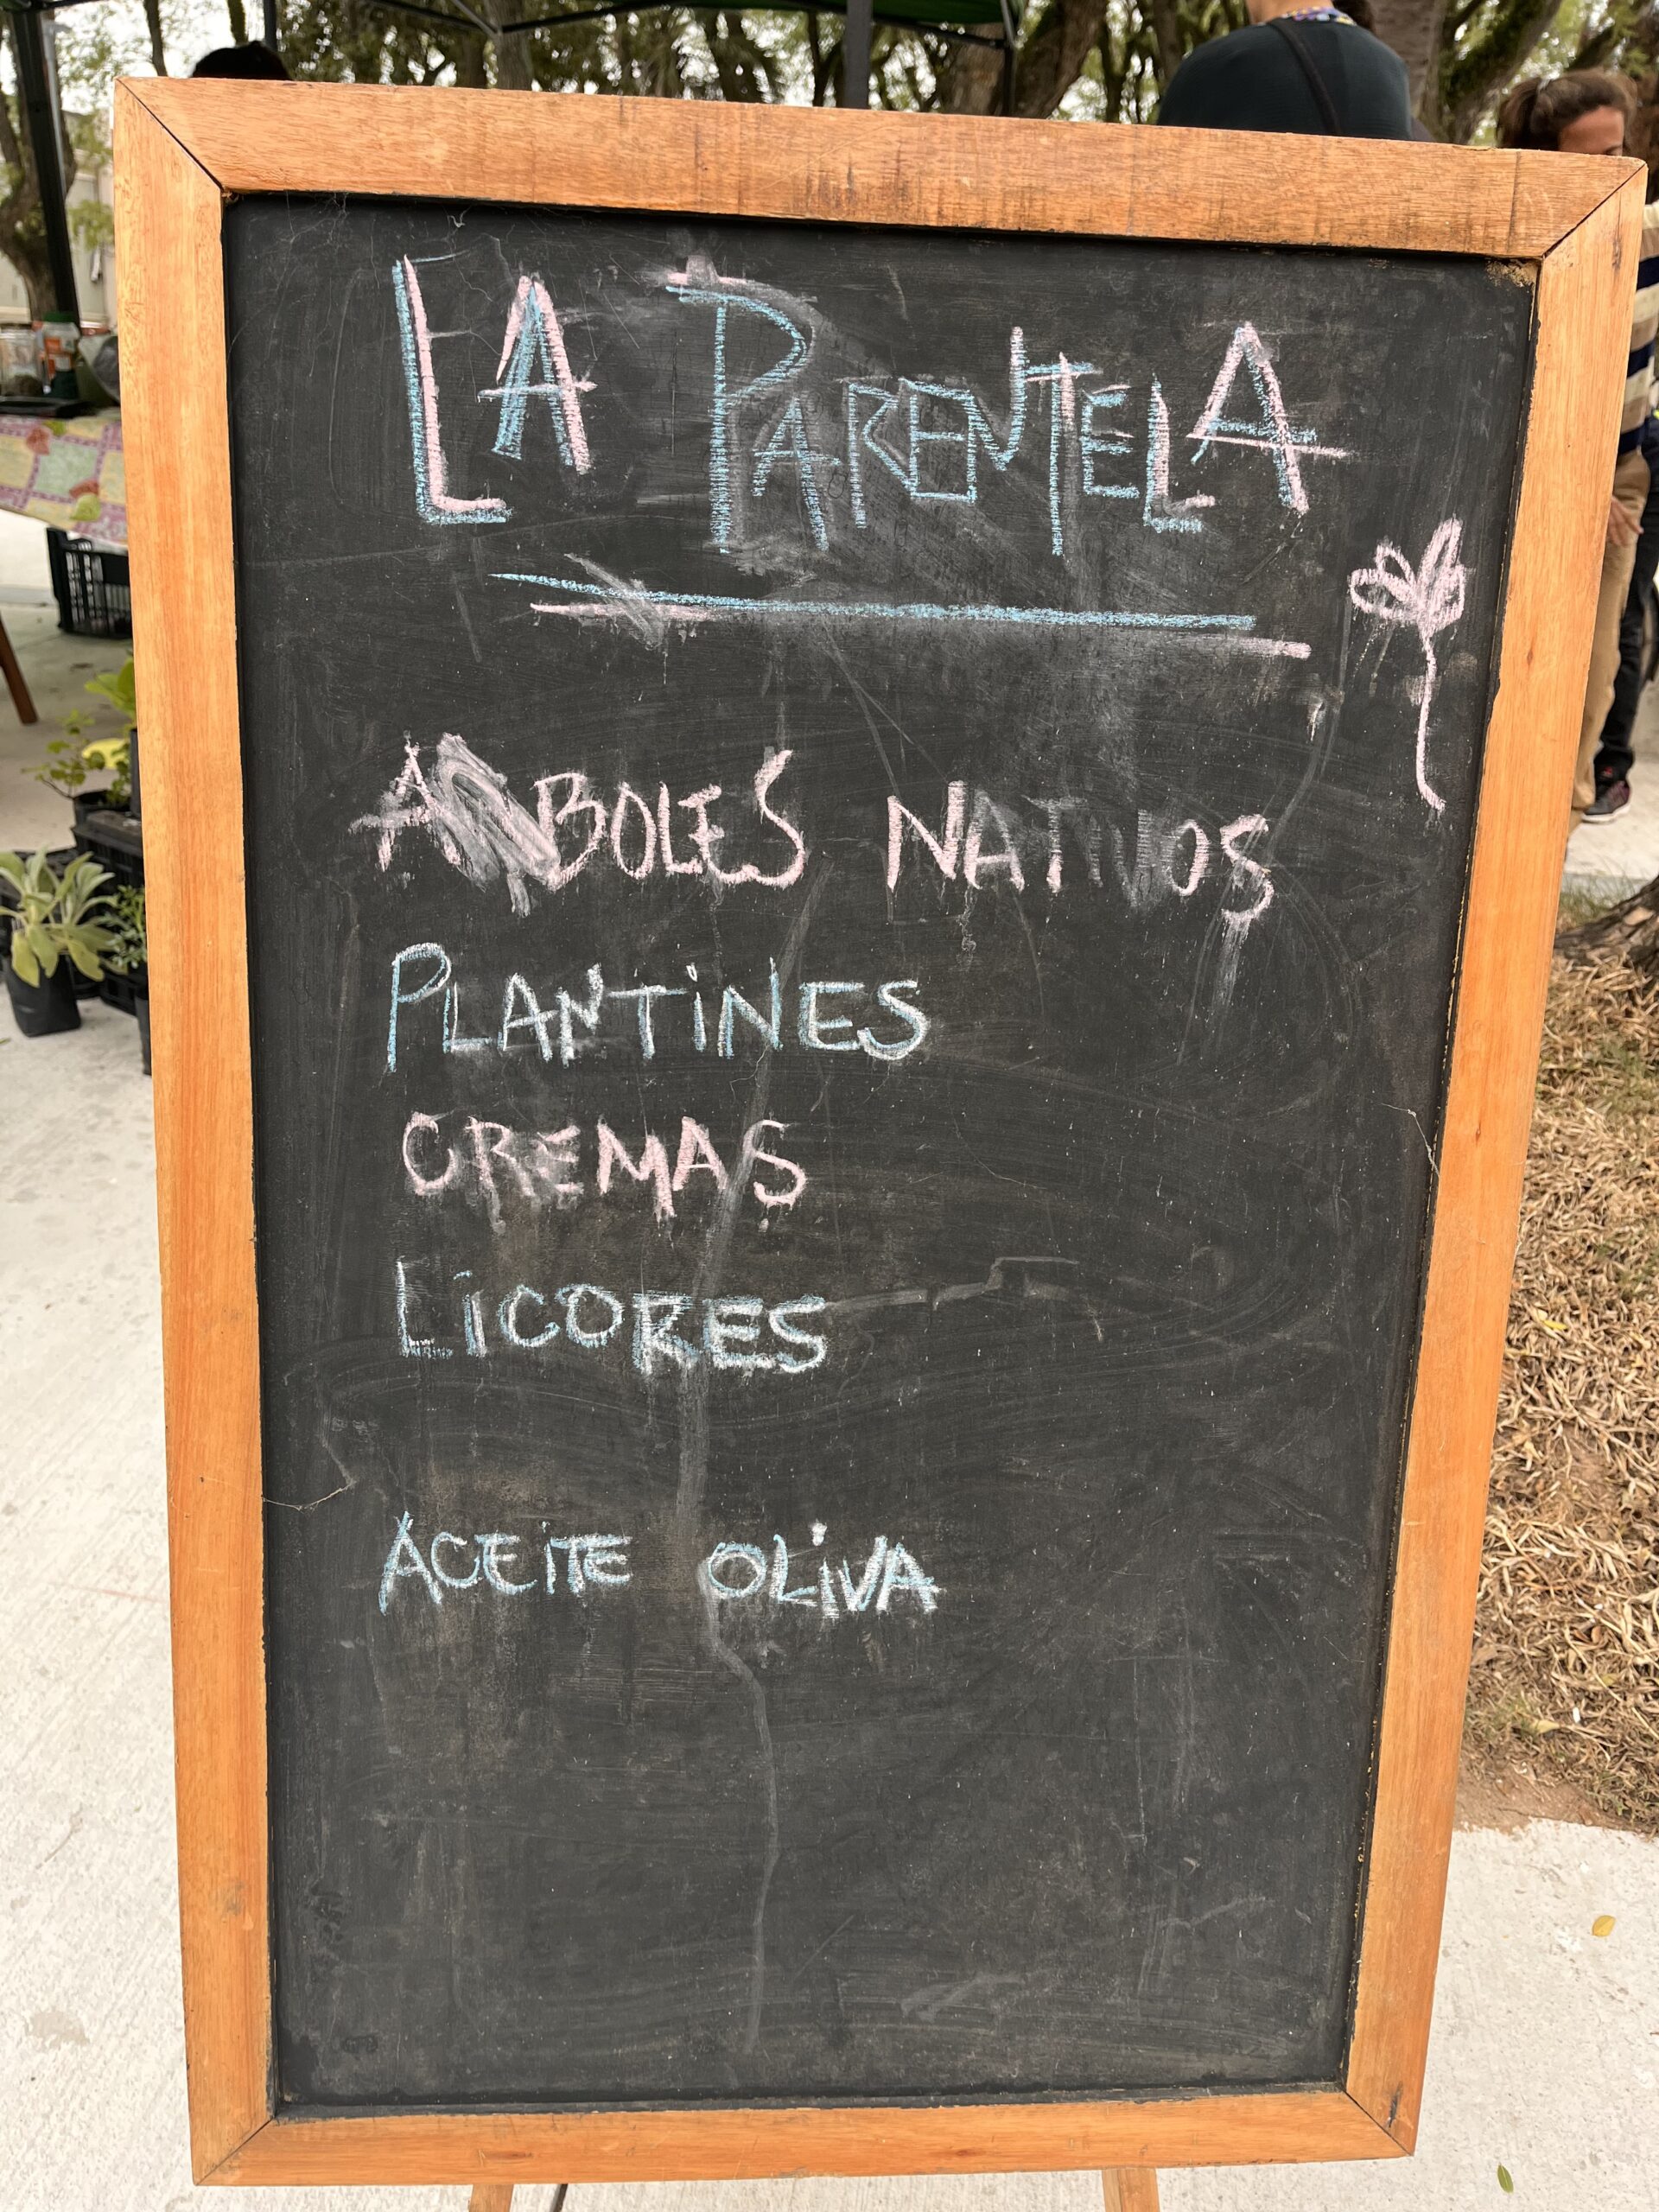 LA PARENTELA
ARBOLES NATIVOS
PLANTINES
CREMAS
LiCORES
ACEiTE OLiVA